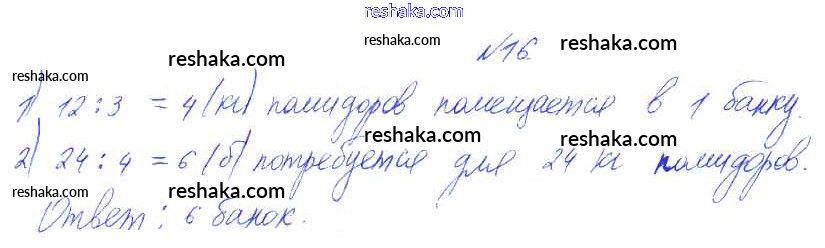 reshaka.com
reshaka.com reshaka.com
№16.
reshaka.com reshaka.com reshaka.com
1) 12 : 3 = 4 (кг) помидоров помещается в 1 банку.
reshaka.com reshaka.com reshaka.com
2) 24 : 4 = 6 (б) потребуется для 24 кг помидоров.
reshaka.com reshaka.com reshaka.com
Ответ: 6 банок.
reshaka.com